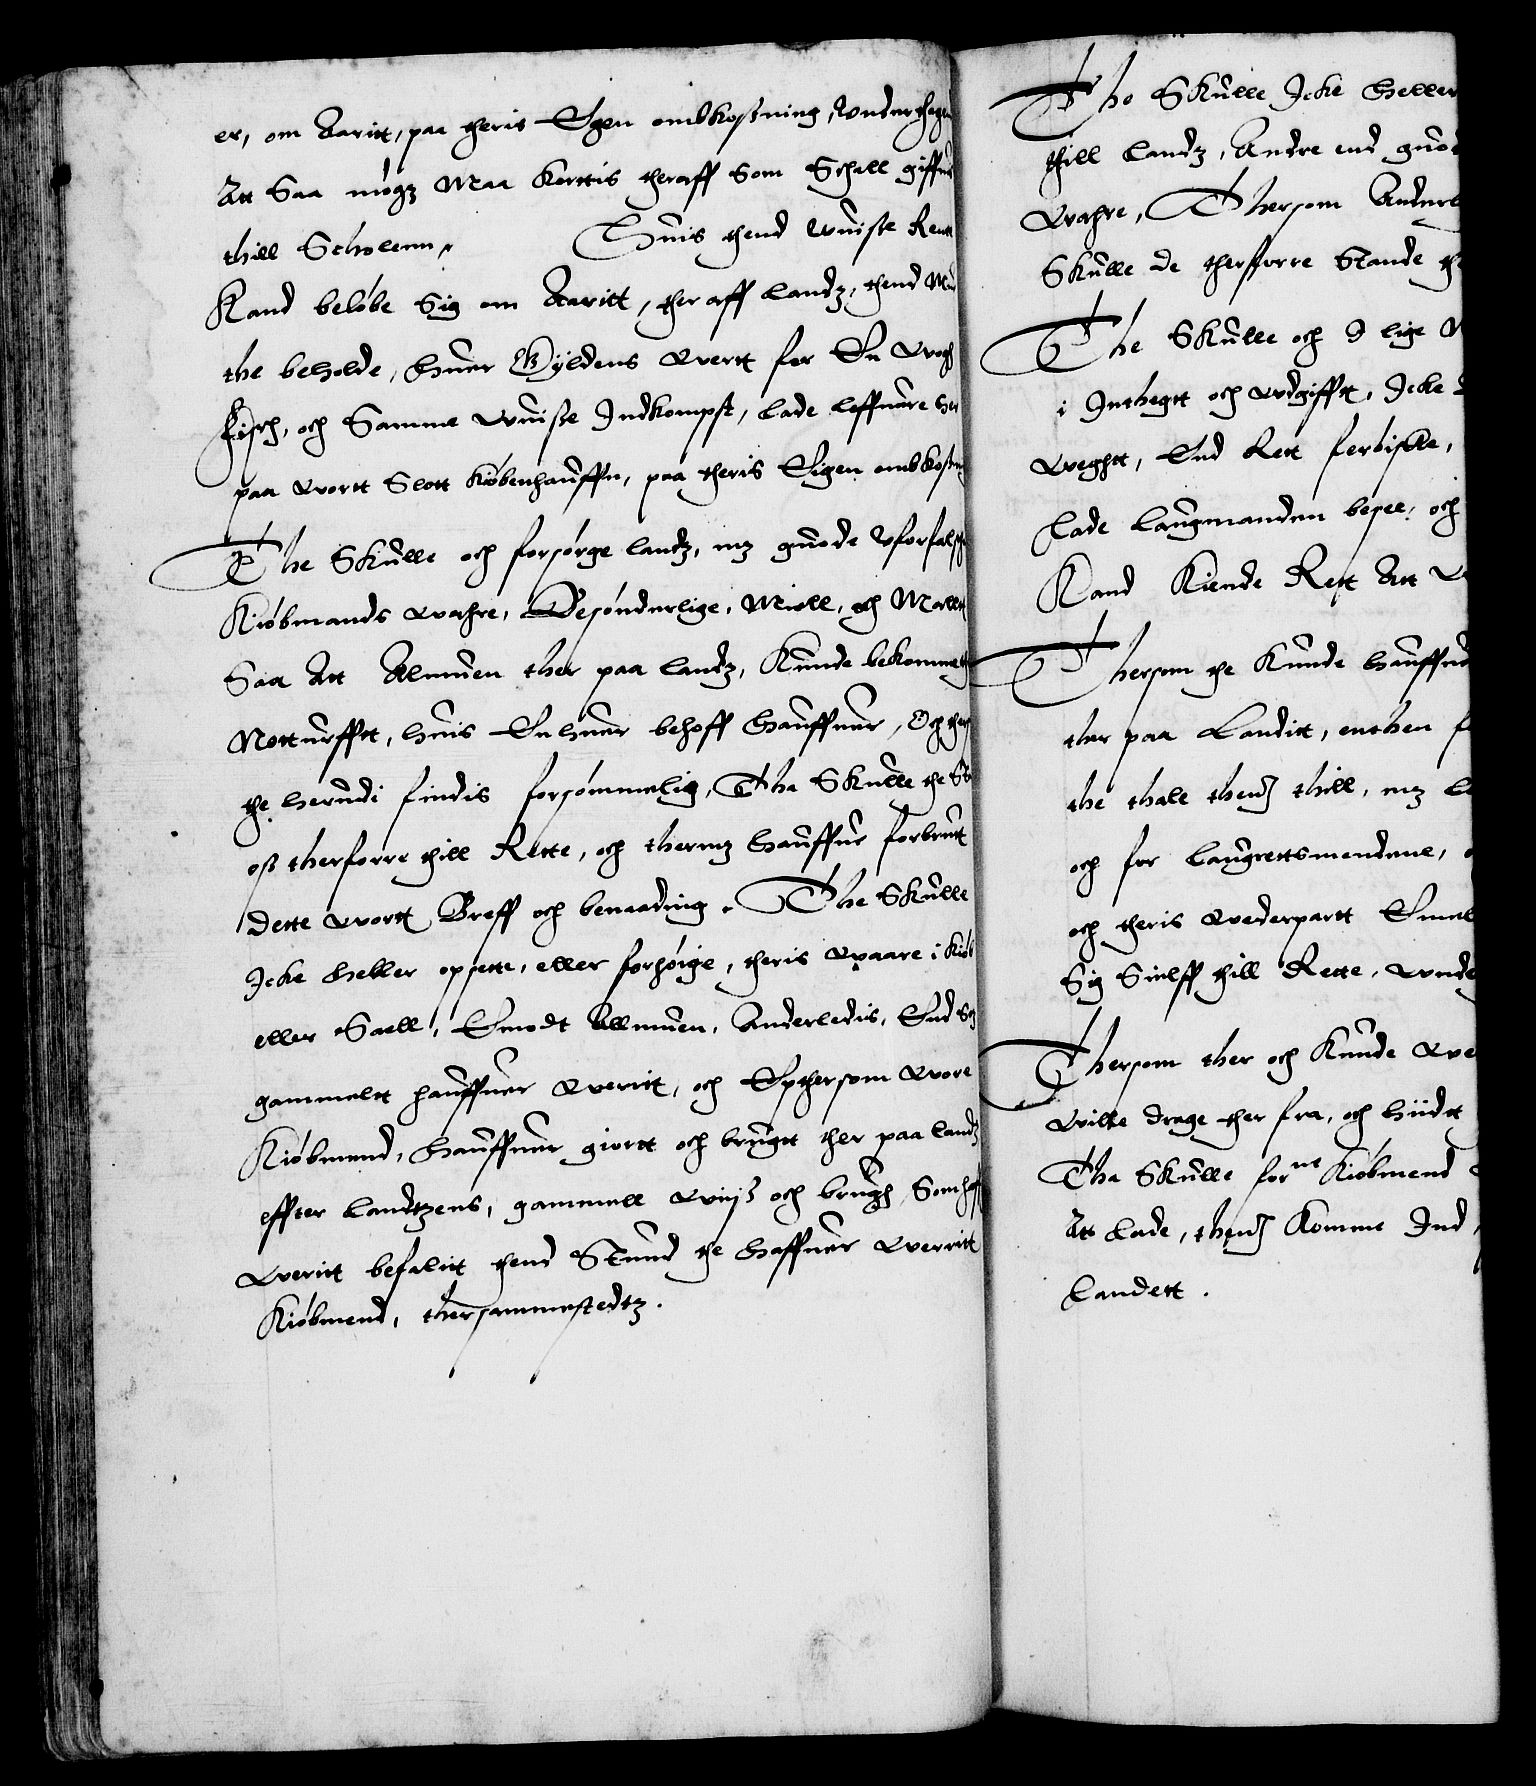 er, om Aaritt, paa theris Egen ombkostning, Underthagen
Att Saa møgz Maa kortis theraff som Schall giffue
thill Scholenn, Huis thend Wuisse Rentt
Kand beløbe Sig om Aaritt, ther aff landz, thend Mue
the beholde, huer Gyldens Wertt for En Wogh
Fisch, och Samme Wuisse Indkompst, lade leffuere her
paa Wortt Slott Kiøbenhauffn, paa theris Eigen ombkostning
The Skulle och forsørge landz, mz guode Uforfalsche
Kiøbmands Wahre, Besønderlige, Miell, och Mallt
Saa Att Almuen ther paa landz, Kunde bekomme
Notturfftt, huis Enhuer behoff Hauffuer, Och ther
the herudi findis forsømmelig, Tha Skulle the Sta
oss therforre thill Rette, och thermz hauffue forbrutt
dette Wortt Breff och benaading. The Skulle
Icke heller opsette, eller forhøige, theris Waare i Kiøb
eller Saell, Emodt Allmuen, Anderledis, End Som
gammelt hauffuer Weritt, och Epthersom Wore
Kiøbmend, hauffuer giortt och brugtt ther paa landz
effter landtzens, gammell Wiisz och brugh, Som haff
Weritt befalitt thend Stund the haffuer Werritt
Kiøbmend, thersammestedtz.
Tho Skulle Icke heller
thill landz, Andre end guod
Wahre, Thersom Anderl
Skulle de therforre Stande th
The Skulle och I lige M
i Inthegtt och Udgifftt, Icke
Weghtt, End Rett ferdiske,
Lade laugmanden besee, och
Kand Kiende Rett Att W
Thersom the Kunde hauffue
ther paa Landitt, enthen f
the thale thend thill, mz l
och for laugrettsmendene, o
och theris Wederpartt Emel
Sig Sielff thill Rette, Unde
Thersom ther och Kunde We
Wilke drage ther fra, och hiidt
Tha Skulle for ne Kiøbmend
Att lade, thend Komme Ind
Landett.